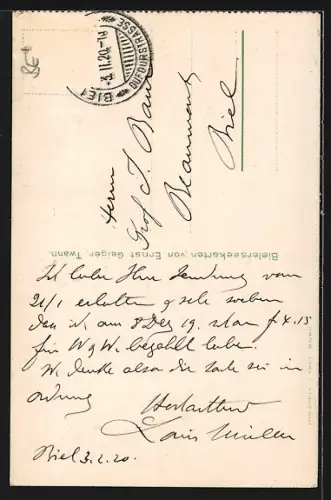 BIEL
3.II.20.
DUFOURSTRASSE
Herrn
Prof. J. Baur
Beaumont
Biel
Bielerseekarten von Ernst Geiger, Twann.
Ich habe Ihre Sendung vom
21/1 erhalten & sehe soeben
das ich am 8 Dez 19. schon f 4.15
für W & W. bezahlt habe.
Ich denke also die Sache sei in
Ordnung
Louis Müller
Biel 3.2.20.